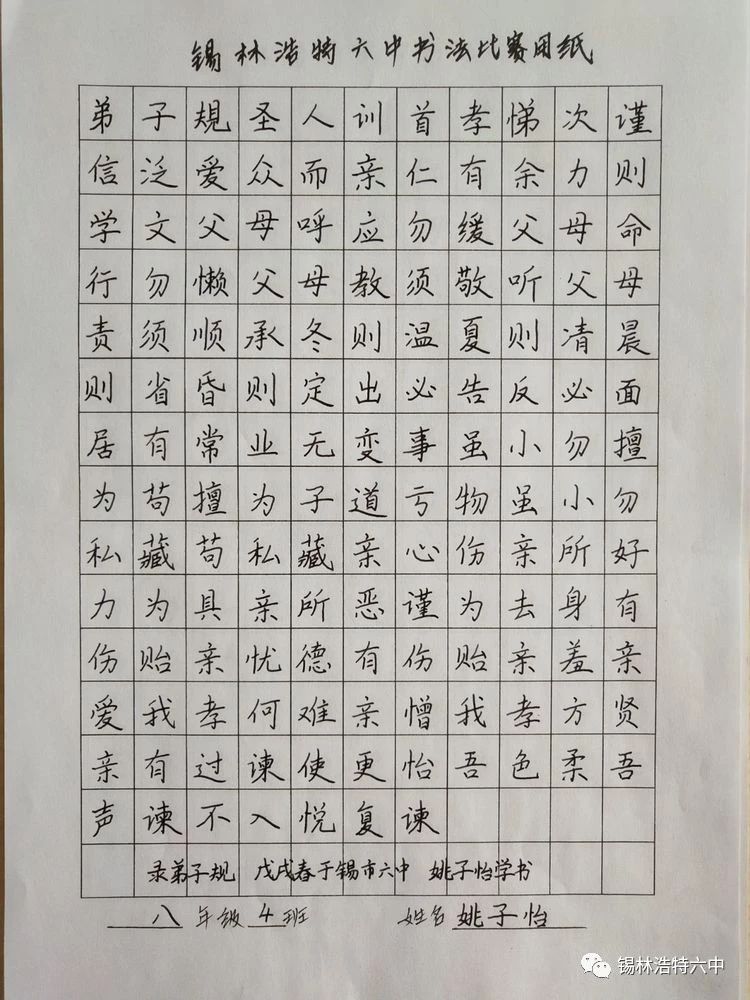 锡林浩特六中书法比赛用纸
弟子规圣人训首孝悌次谨
信泛爱众而亲仁有余力则
学文父母呼应勿缓父母命
行勿懒父母教须敬听父母
责须顺承冬则温夏则凊晨
则省昏则定出必告反必面
居有常业无变事虽小勿擅
为苟擅为子道亏物虽小勿
私藏苟私藏亲心伤亲所好
力为具亲所恶谨为去身有
伤贻亲忧德有伤贻亲羞亲
爱我孝何难亲憎我孝方贤
亲有过谏使更怡吾色柔吾
声谏不入悦复谏
录弟子规 戊戌春于锡市六中 姚子怡学书
八年级4班 姓名 姚子怡
锡林浩特六中